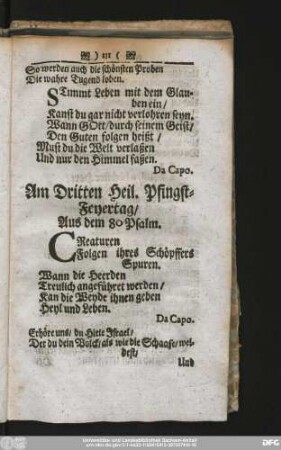 ) 111 (
So werden auch die schönsten Proben
Die wahre Tugend loben.
STimmt Leben mit dem Glau-
ben ein/
Kanst du gar nicht verlohren seyn.
Wann GOtt/durch seinem Geist/
Den Guten folgen heißt /
Must du die Welt verlaßen
Und nur den Himmel faßen.
Da Capo.
Am Dritten Heil. Pfingst-
Feyertag/
Aus dem 80 Psalm.
CReaturen
Folgen ihres Schöpffers
Spuren.
Wann die Heerden
Treulich angeführet werden/
Kan die Weyde ihnen geben
Heyl und Leben.
Da Capo.
Erhöre uns/ du Hirte Israel/
Der du dein Volck/als wie die Schaafe/wei-
dest/
Und
Universitäts- und Landesbibliothek Sachsen-Anhalt
DFG